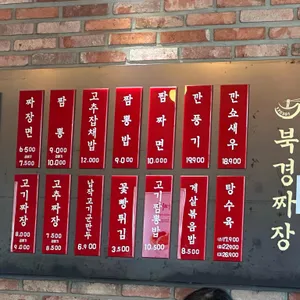 짜장면
6.500
곱빼기
7.500
짬뽕
9.000
곱빼기
10.000
고추잡채밥
12.000
짬뽕밥
9.000
짬짜면
10.000
깐풍기
19.900
깐쇼새우
18.900
고기짜장
8.000
9.000
고추짜장
7.500
8.500
납작고기군만두
6.900
꽃빵튀김
3.500
고기짬뽕밥
10.500
게살볶음밥
8.500
탕수육
17.900
22.900
26.900
북경짜장